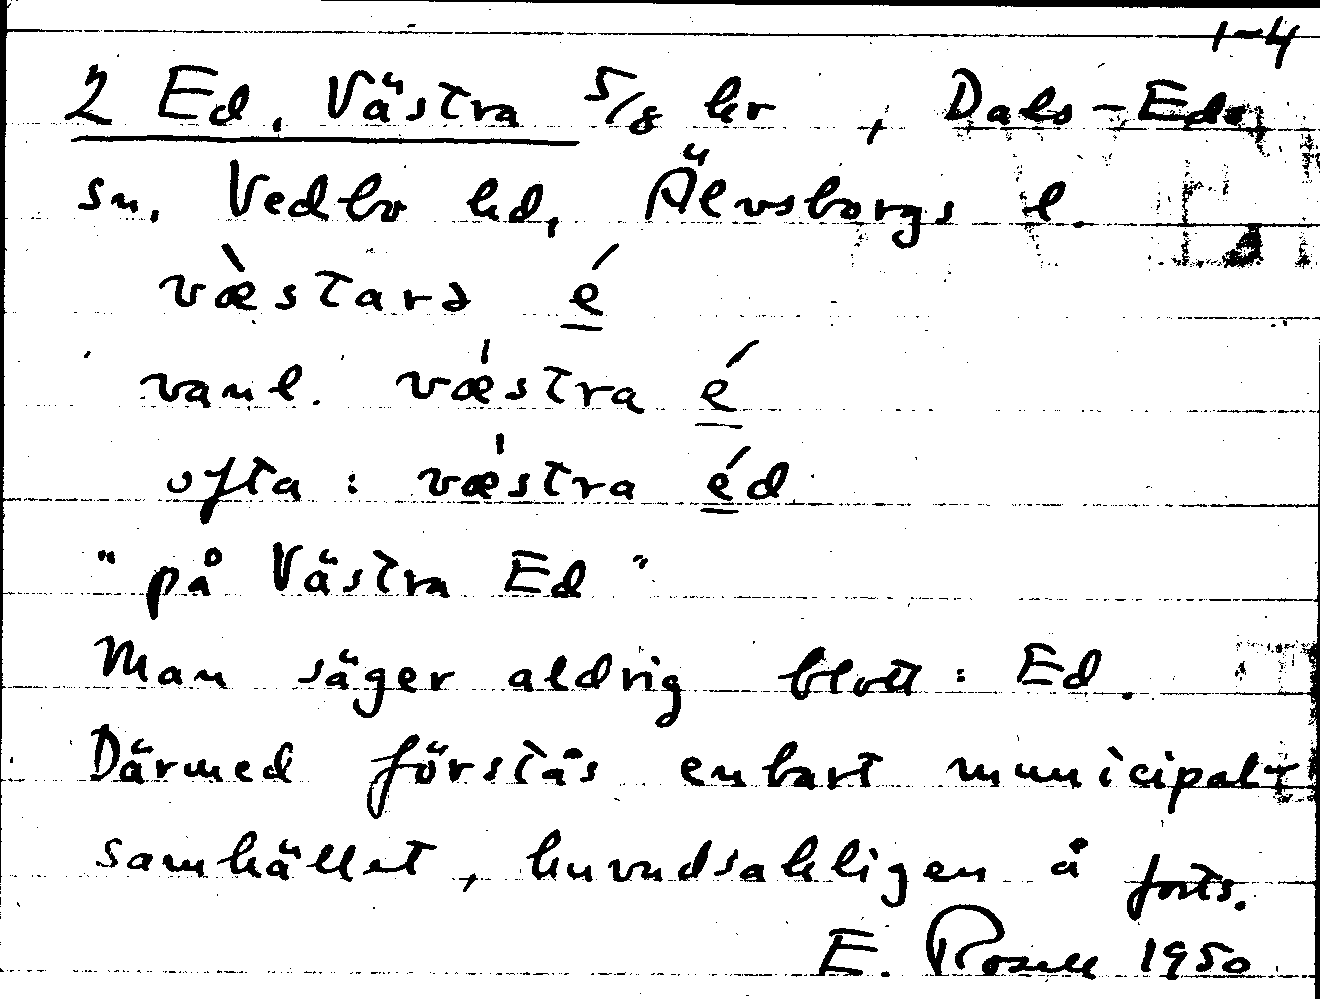 1-4
2 Ed, Västra 5/8 hr , Dals-Eds
sn. Vedbo hd, Älvsborgs l.
væ̀starə é
vanl. vǽstra é
ofta : vǽstra éd
" på Västra Ed "
Man säger aldrig blott : Ed.
Därmed förstås enbart municipal-
samhället, huvudsakligen å forts.
E. Rosell 1950